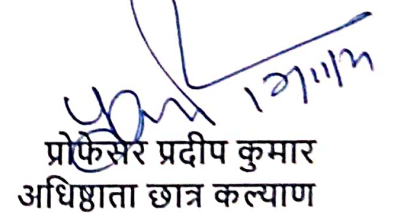 प्रोफेसर प्रदीप कुमार
अधिष्ठाता छात्र कल्याण